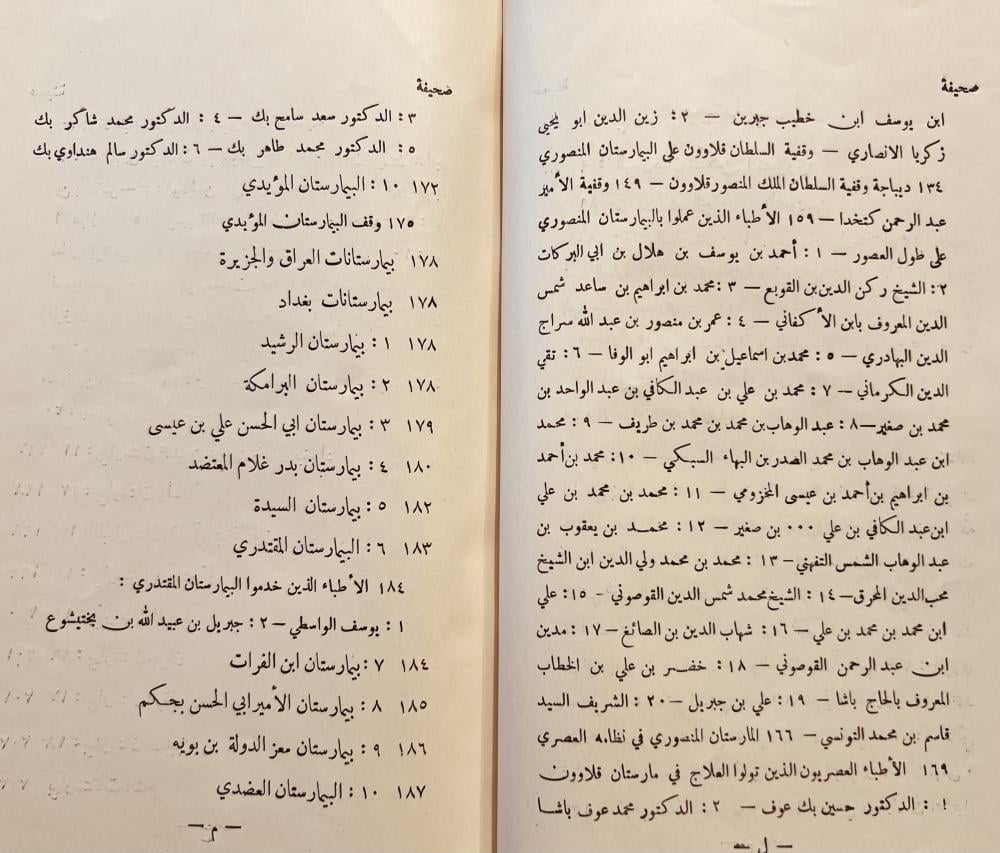 صحيفة
ابن يوسف ابن خطيب جبرين — ٢: زين الدين ابو يحيى
زكريا الانصاري — وقفية السلطان قلاوون على البيمارستان المنصوري
١٣٤ ديباجة وقفية السلطان الملك المنصور قلاوون — ١٤٩ وقفية الأمير
عبد الرحمن كتخدا — ١٥٩ الأطباء الذين عملوا بالبيمارستان المنصوري
على طول العصور — ١ : أحمد بن يوسف بن هلال بن ابي البركات
٢: الشيخ ركن الدين بن القوبع — ٣ :محمد بن ابراهيم بن ساعد شمس
الدين المعروف بابن الأكفاني — ٤ : عمر بن منصور بن عبد الله سراج
الدين البهادري — ٥ : محمد بن اسماعيل بن ابراهيم ابو الوفا — ٦ : تقي
الدين الكرماني — ٧ : محمد بن علي بن عبد الكافي بن عبد الواحد بن
محمد بن صغير — ٨ : عبد الوهاب بن محمد بن محمد بن طريف — ٩ : محمد
ابن عبد الوهاب بن محمد الصدر بن البهاء السبكي — ١٠ : محمد بن أحمد
بن ابراهيم بن أحمد بن عيسى المخزومي — ١١ : محمد بن محمد بن علي
ابن عبد الكافي بن علي ٠٠٠ بن صغير — ١٢ : محمد بن يعقوب بن
عبد الوهاب الشمس التفهني — ١٣ : محمد بن محمد ولي الدين ابن الشيخ
محب الدين المحرق — ١٤ : الشيخ محمد شمس الدين القوصوني - ١٥ : علي
ابن محمد بن محمد بن علي — ١٦ : شهاب الدين بن الصائغ — ١٧ : مدين
ابن عبد الرحمن القوصوني — ١٨ : خضر بن علي بن الخطاب
المعروف بالحاج باشا — ١٩ : علي بن جبريل — ٢٠ : الشريف السيد
قاسم بن محمد التونسي — ١٦٦ المارستان المنصوري في نظامه العصري
١٦٩ الأطباء العصريون الذين تولوا العلاج في مارستان قلاوون
١ : الدكتور حسين بك عوف — ٢ : الدكتور محمد عوف باشا
— ل —
صحيفة
٣ : الدكتور سعد سامح بك — ٤ : الدكتور محمد شاكر بك
٥ : الدكتور محمد طاهر بك — ٦ : الدكتور سالم هنداوي بك
١٧٢ ١٠ : البيمارستان المؤيدي
١٧٥ وقف البيمارستان المؤيدي
١٧٨ بيمارستانات العراق والجزيرة
١٧٨ بيمارستانات بغداد
١٧٨ ١ : بيمارستان الرشيد
١٧٨ ٢ : بيمارستان البرامكة
١٧٩ ٣ : بيمارستان ابي الحسن علي بن عيسى
١٨٠ ٤ : بيمارستان بدر غلام المعتضد
١٨٢ ٥ : بيمارستان السيدة
١٨٣ ٦ : البيمارستان المقتدري
١٨٤ الأطباء الذين خدموا البيمارستان المقتدري :
١ : يوسف الواسطي — ٢ : جبريل بن عبيد الله بن بختيشوع
١٨٤ ٧ : بيمارستان ابن الفرات
١٨٥ ٨ : بيمارستان الأمير ابي الحسن بجكم
١٨٦ ٩ : بيمارستان معز الدولة بن بويه
١٨٧ ١٠ : البيمارستان العضدي
— م —